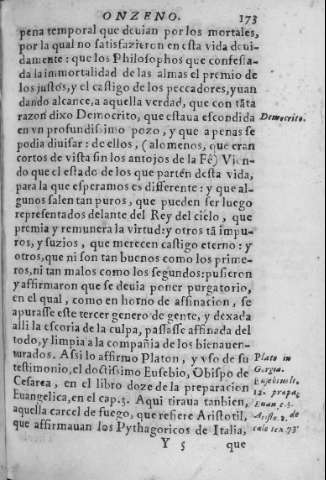 ONZENO. 173
pena temporal que deuian por los mortales,
por la qual no satisfazieron en esta vida deui-
damente : que los Philosophos que confessa-
da la immortalidad de las almas el premio de
los justos, y el castigo de los peccadores, yuan
dando alcance, a aquella verdad, que con tāta
razon dixo Democrito, que estaua escondida Democrito.
en vn profundissimo pozo, y que apenas se
podia diuisar : de ellos, (alomenos, que eran
cortos de vista sin los antojos de la Fè) Vien-
do que el estado de los que parten desta vida,
para la que esperamos es differente : y que al-
gunos salen tan puros, que pueden ser luego
representados delante del Rey del cielo, que
premia y remunera la virtud : y otros tā impu-
ros, y suzios, que merecen castigo eterno : y
otros, que ni son tan buenos como los prime-
ros, ni tan malos como los segundos : pusieron
y affirmaron que se deuia poner purgatorio,
en el qual, como en horno de affinacion, se
apurasse este tercer genero de gente, y dexada
alli la escoria de la culpa, passasse affinada del
todo, y limpia a la compañia de los bienauen-
turados. Assi lo affirmo Platon, y vso de su Plato in
testimonio, el doctissimo Eusebio, Obispo de Gorgia.
Cesarea, en el libro doze de la preparacion Eusebius l.
Euangelica, en el cap. 3. Aqui tiraua tanbien, 12. prapa.
aquella carcel de fuego, que refiere Aristotil, Euan c. 3.
que affirmauan los Pythagoricos de Italia, Aristo. 2. de
Y 5 que cælo tex. 73